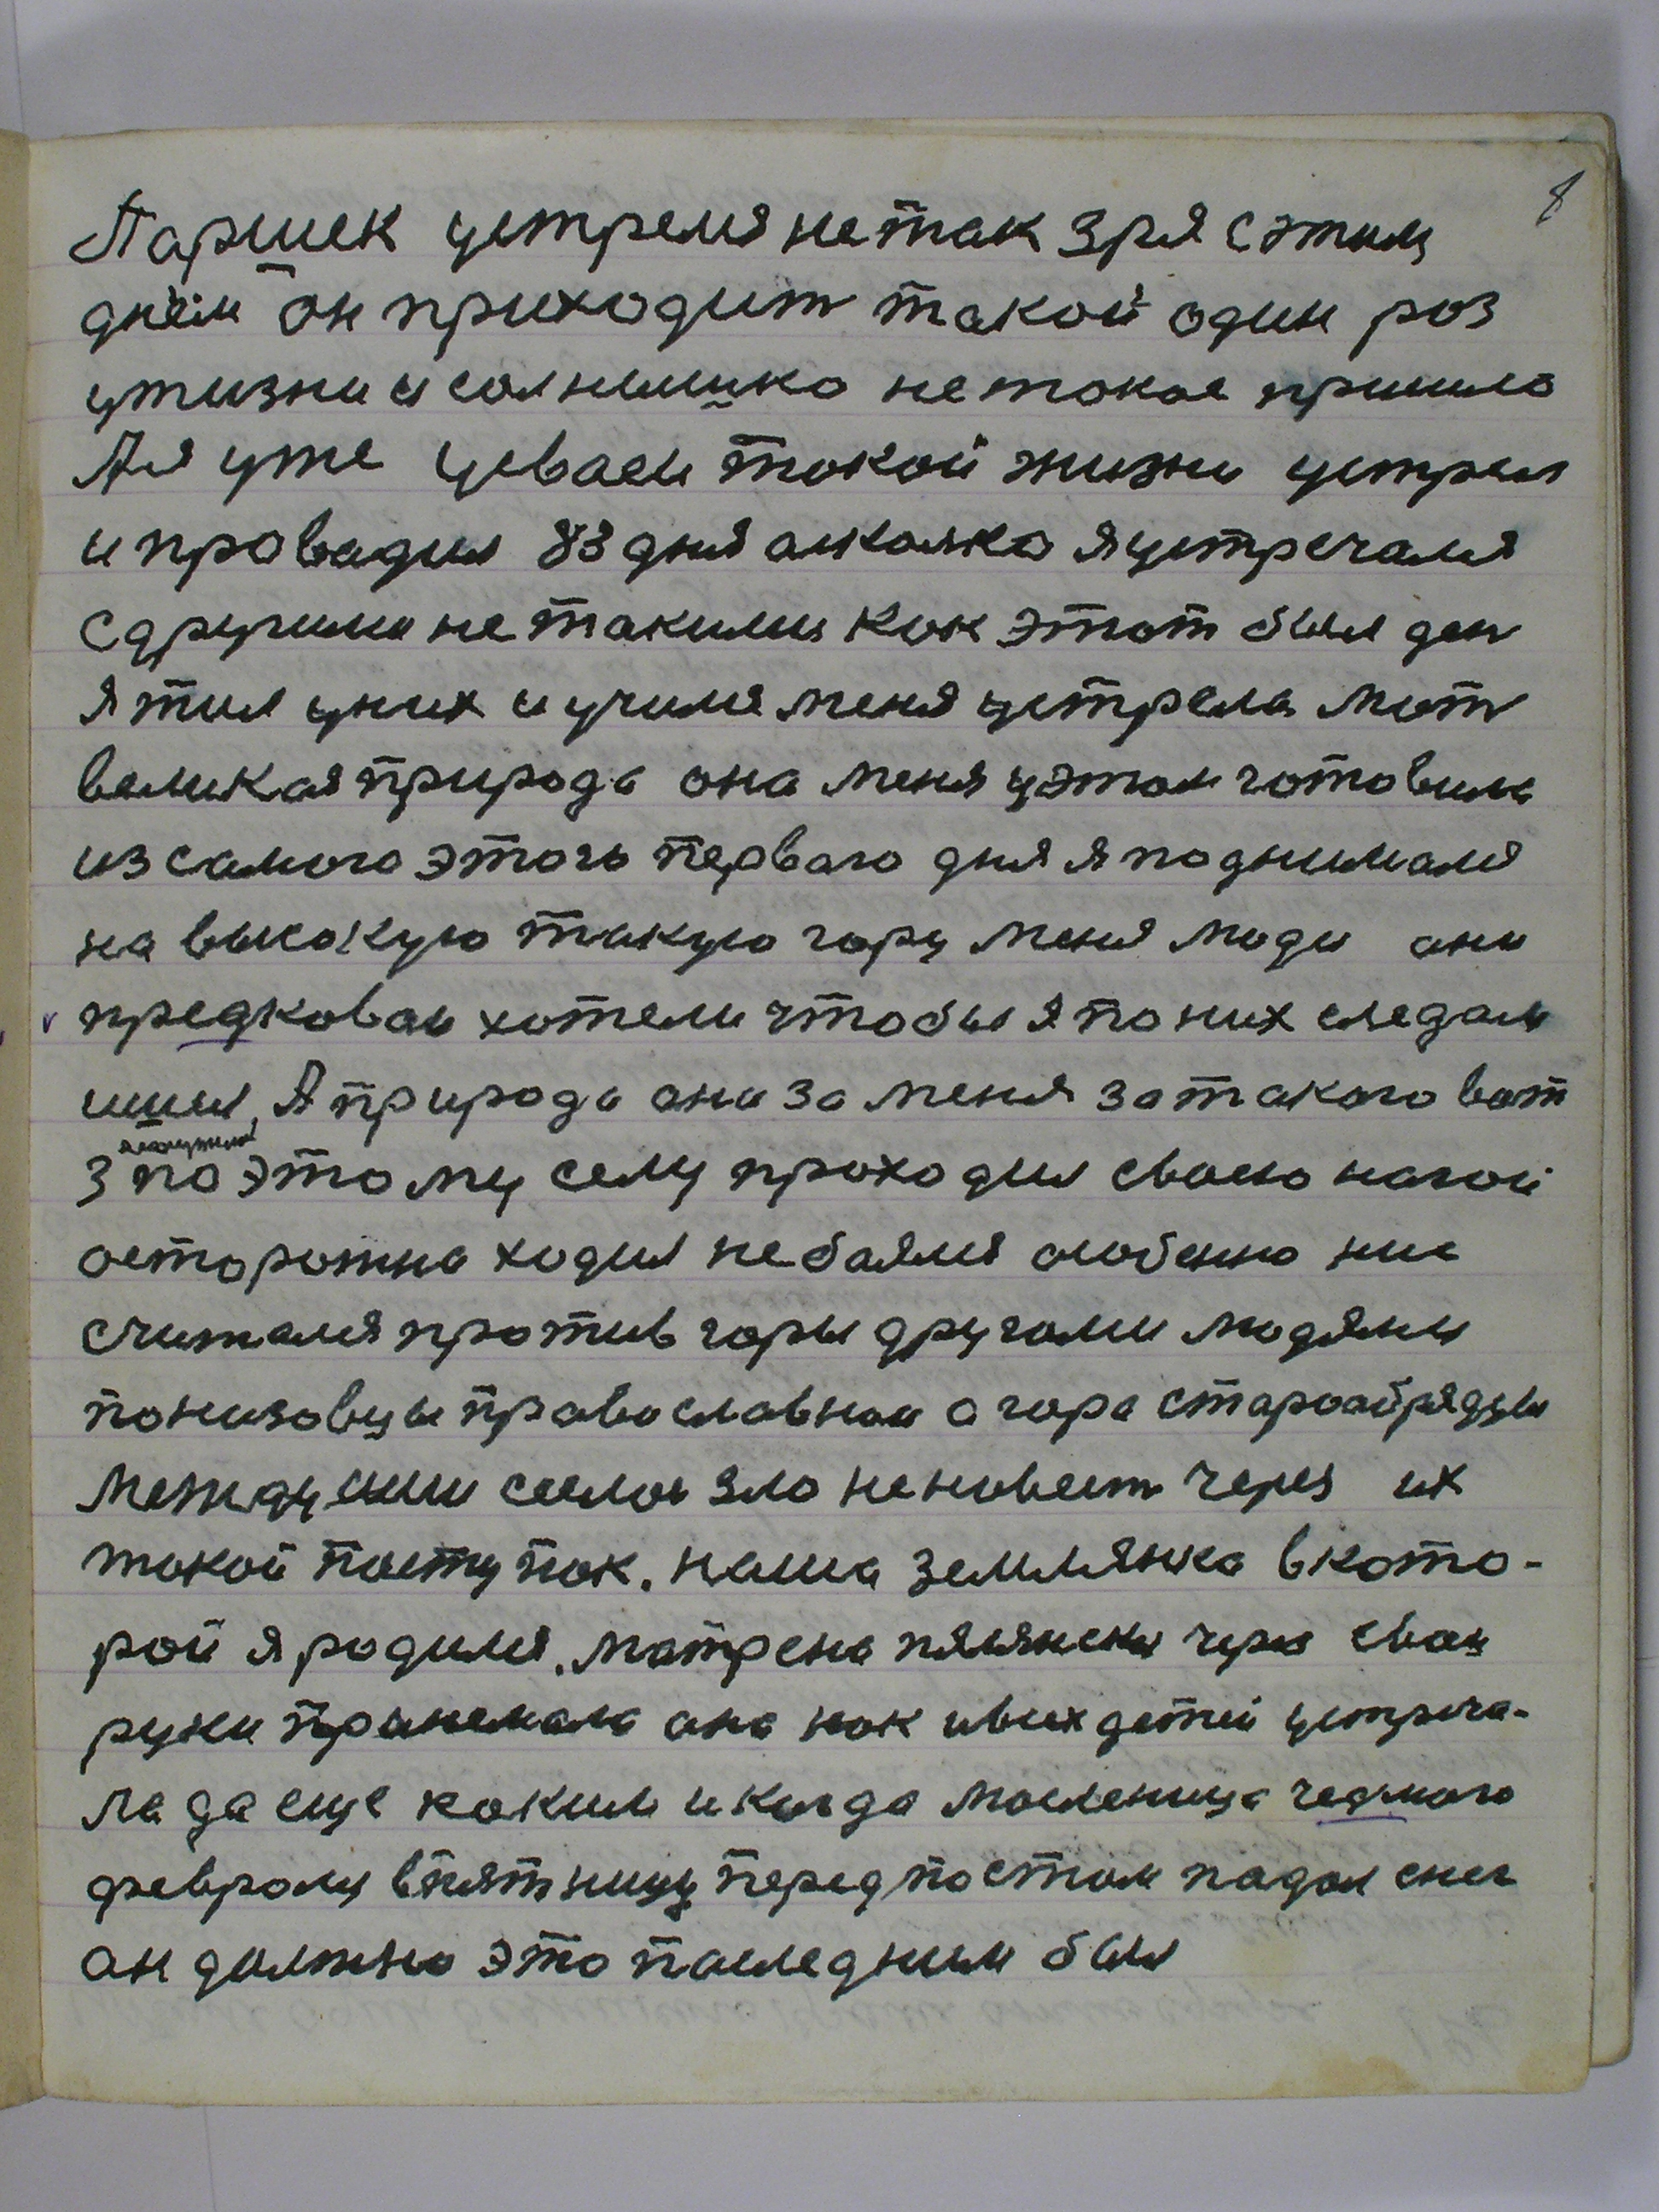 8
Паршек устрелся не так зря с этим
днём он приходит такой один роз
ужизни и солнышко не токое пришло
А я уже усваеи токой жизни устрел
и провадил 83 дня а сколко я устречался
с другими не такими как этот был ден
я жил уних и училя меня устрела мать
великая природа она меня уэтом готовила
из самого этого первого дня я поднимался
на высокую такую гору меня люди они
предковаи хотели чтобы я по них следам
шил, А природа она за меня за такого вот
з поэтому селу проходил своею ногой
осторожно ходил не баялся особенно ние
считался против горы другоми людями
понизовцы православнои а гора старообрядцы
Между ими село зло ненавест через их
токой поступок. наша землянка в кото-
рой я родился. Матрена через свои
руки принемала она как ивсих детей устреча-
ла да еще каким и когда масленица
февролу в пятницу перед постом падал снег
он должно это последним был